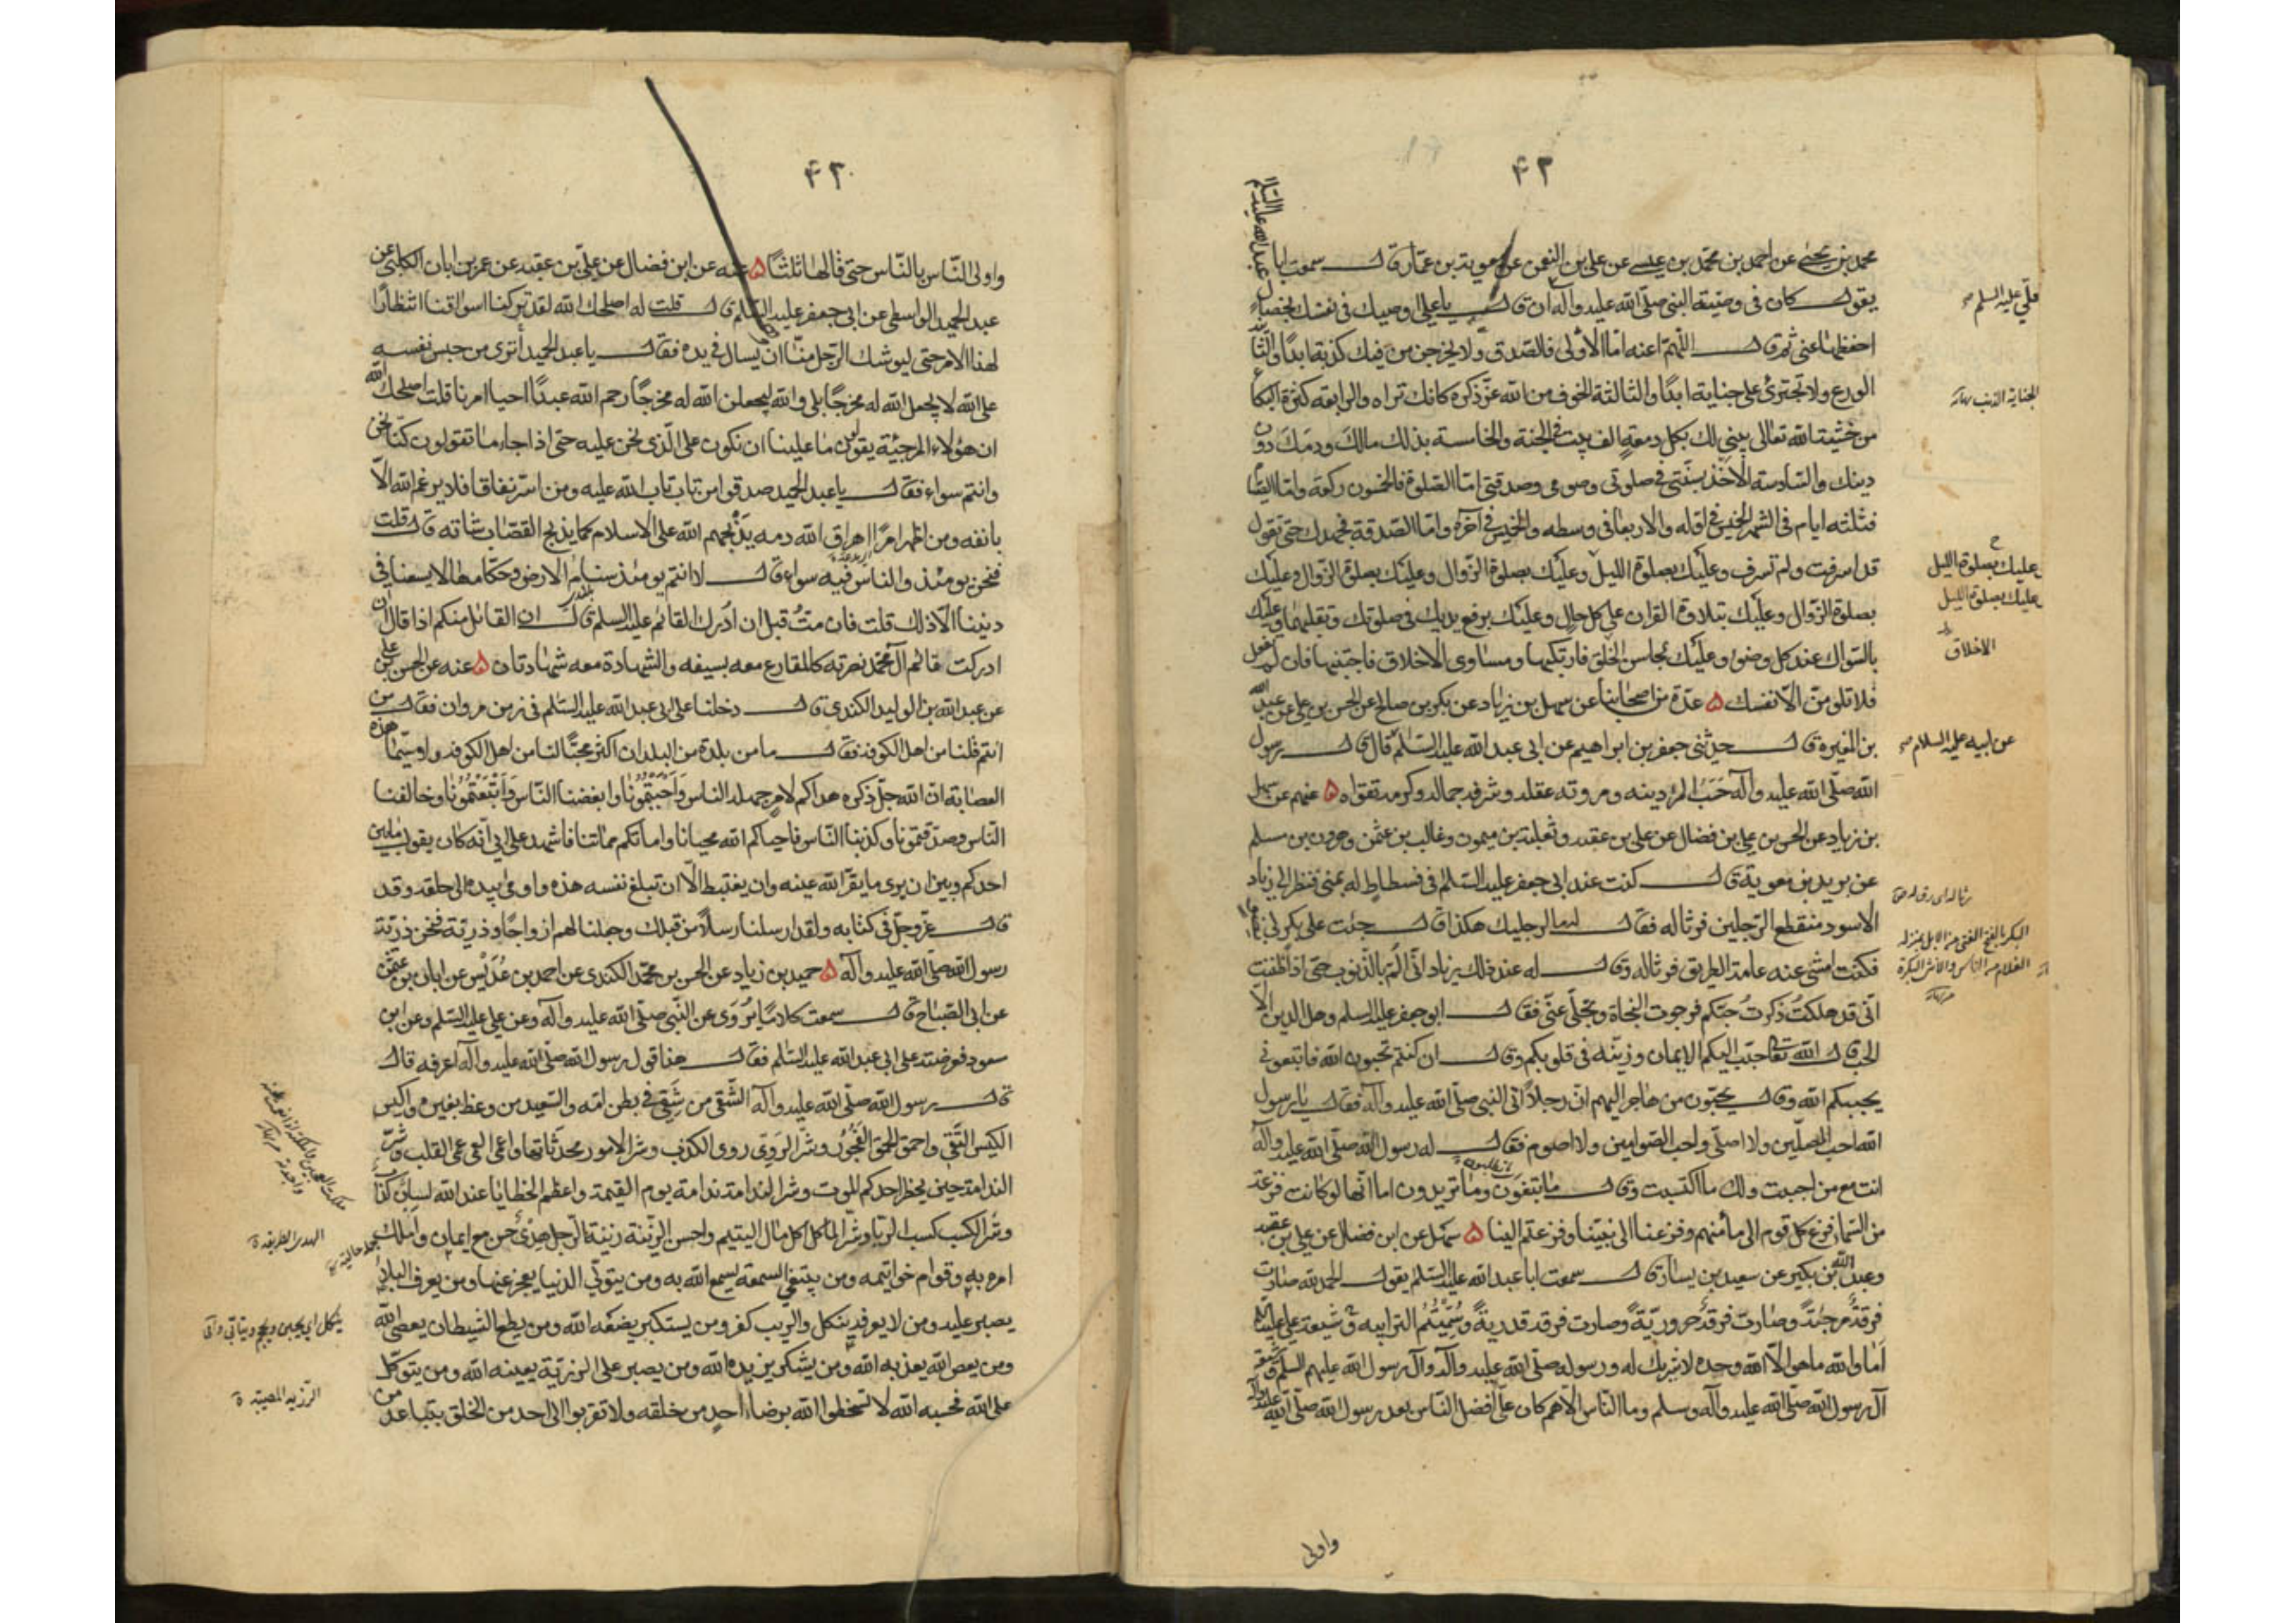 ۴۲
محمد بن يحيى عن احمد بن محمد بن عيسى عن على بن النعمن عن معوية بن عمار قال سمعت ابا عبد الله عليه السلم
يقول كان فى وصية النبى صلى الله عليه وآله ان قال يا على اوصيك فى نفسك بخصال
احفظها عنى ثم قال اللهم اعنه اما الاولى فالصدق ولا يخرجن من فيك كذبة ابدا والثانية
الورع ولا تجترئ على جناية ابدا والثالثة الخوف من الله عز ذكره كانك تراه والرابعة كثرة البكاء
من خشية الله تعالى يبنى لك بكل دمعة الف بيت فى الجنة والخامسة بذلك مالك ودمك دون
دينك والسادسة الاخذ بسنتى فى صلوتى وصومى وصدقتى اما الصلوة فالخمسون ركعة واما الصيام
فثلثة ايام فى الشهر الخميس فى اوله والاربعا فى وسطه والخميس فى آخره واما الصدقة فجهدك حتى تقول
قد اسرفت ولم تسرف وعليك بصلوة الليل وعليك بصلوة الزوال وعليك بصلوة الزوال وعليك
بصلوة الزوال وعليك بتلاوة القرآن على كل حال وعليك برفع يديك فى صلوتك وتقليبهما وعليك
بالسواك عند كل وضوء وعليك بمحاسن الخلق فارتكبها ومساوى الاخلاق فاجتنبها فان لم تفعل
فلا تلومن الا نفسك ۵ عدة من اصحابنا عن سهل بن زياد عن بكر بن صالح عن الحسن بن على عن عبد الله
بن المغيرة قال حدثنى جعفر بن ابراهيم عن ابى عبد الله عليه السلام قال قال رسول
الله صلى الله عليه وآله حسب المرء دينه ومروته عقله وشرفه جماله وكرمه تقواه ۵ عنهم عن سهل
بن زياد عن الحسن بن على بن فضال عن على بن عقبه وثعلبة بن ميمون وغالب بن عثمن وهرون بن مسلم
عن بريد بن معوية قال كنت عند ابى جعفر عليه السلام فى فسطاط له بمنى فنظر الى زياد
الاسود منقطع الرجلين فرثا له فقال له ما لرجليك هكذا قال جئت على بكر لى نضو
فكنت امشى عنه عامة الطريق فرثا له وقال له عند ذلك زياد انى الم بالذنوب حتى اذا ظننت
انى قد هلكت ذكرت حبكم فرجوت النجاة وتجلى عنى فقال ابو جعفر عليه السلم وهل الدين الا
الحب قال الله تعالى حبب اليكم الايمان وزينه فى قلوبكم وقال ان كنتم تحبون الله فاتبعونى
يحببكم الله وقال يحبون من هاجر اليهم ان رجلا اتى النبى صلى الله عليه وآله فقال يا رسول
الله احب المصلين ولا اصلى واحب الصوامين ولا اصوم فقال له رسول الله صلى الله عليه وآله
انت مع من احببت ولك ما اكتسبت وقال ما تبغون وما تريدون اما انها لو كانت فزعة
من السماء فزع كل قوم الى مأمنهم وفزعنا الى نبينا وفزعتم الينا ۵ سهل عن ابن فضال عن على بن عقبه
وعبد الله بن بكير عن سعيد بن يسار قال سمعت ابا عبد الله عليه السلم يقول الحمد لله صارت
فرقة مرجئة وصارت فرقة حرورية وصارت فرقة قدرية وسميتم الترابيه وشيعة على
اما والله ما هو الا الله وحده لا شريك له ورسوله صلى الله عليه وآله وآل رسول الله عليهم السلم وشيعة
آل رسول الله صلى الله عليه وآله وسلم وما الناس الا هم كان على افضل الناس بعد رسول الله صلى الله عليه وآله
واولى
على عليه السلم
الجناية الذنب نهاية
عليك بصلوة الليل
عليك بصلوة الليل
الاخلاق
عن ابيه عليه السلام
رثا له اى رق له
البكر بالفتح الفتى من الابل بمنزلة
الغلام من الناس والانثى البكرة
نهاية
۴۲
واولى الناس بالناس حتى قالها ثلثا ۵ عنه عن ابن فضال عن على بن عقبه عن عمر بن ابان الكلبى عن
عبد الحميد الواسطى عن ابى جعفر عليه السلم قال قلت له اصلحك الله لقد تركنا اسواقنا انتظارا
لهذا الامر حتى ليوشك الرجل منا ان يسال فى يده فقال يا عبد الحميد أترى من حبس نفسه
على الله لا يجعل الله له مخرجا بلى والله ليجعلن الله له مخرجا رحم الله عبدا احيا امرنا قلت اصلحك الله
ان هؤلاء المرجئة يقولون ما علينا ان نكون على الذى نحن عليه حتى اذا جاء ما تقولون كنا نحن
وانتم سواء فقال يا عبد الحميد صدقوا من تاب تاب الله عليه ومن اسر نفاقا فلا يرغم الله الا
بانفه ومن اظهر امرا اهراق الله دمه يذبحهم الله على الاسلام كما يذبح القصاب شاته قال قلت
فنحن يومئذ والناس فيه سواء قال لا انتم يومئذ سنام الارض وحكامها لا يسعنا فى
ديننا الا ذلك قلت فان مت قبل ان ادرك القائم عليه السلم قال ان القائل منكم اذا قال ان
ادركت قائم آل محمد نصرته كالمقارع معه بسيفه والشهادة معه شهادتان ۵ عنه عن الحسن بن على
عن عبد الله بن الوليد الكندى قال دخلنا على ابى عبد الله عليه السلام فى زمن مروان فقال من
انتم قلنا من اهل الكوفه فقال ما من بلدة من البلدان اكثر محبا لنا من اهل الكوفه ولا سيما هذه
العصابة ان الله جل ذكره هداكم لامر جهله الناس واحببتمونا وابغضنا الناس واتبعتمونا وخالفنا
الناس وصدقتمونا وكذبنا الناس فاحياكم الله محيانا واماتكم مماتنا فاشهد على ابى انه كان يقول ما بين
احدكم وبين ان يرى ما يقر الله عينه وان يغتبط الا ان تبلغ نفسه هذه واومى بيده الى حلقه وقد
قال عز وجل فى كتابه ولقد ارسلنا رسلا من قبلك وجعلنا لهم ازواجا وذرية فنحن ذرية
رسول الله صلى الله عليه وآله ۵ حميد بن زياد عن الحسن بن محمد الكندى عن احمد بن عديس عن ابان بن عثمن
عن ابى الصباح قال سمعت كلاما يروى عن النبى صلى الله عليه وآله وعن على عليه السلم وعن ابن
مسعود فعرضته على ابى عبد الله عليه السلام فقال هذا قول رسول الله صلى الله عليه وآله اعرفه قال
قال رسول الله صلى الله عليه وآله الشقى من شقى فى بطن امه والسعيد من وعظ بغيره واكيس
الكيس التقى واحمق الحمق الفجور وشر الروى روى الكذب وشر الامور محدثاتها واعمى العمى عمى القلب وشر
الندامة حين يحضر احدكم الموت وشر الندامة ندامة يوم القيمة واعظم الخطايا عند الله لسان كذاب
وشر الكسب كسب الربا وشر المأكل اكل مال اليتيم واحسن الزينة زينة الرجل هدى حسن مع ايمان واملك
امره به وقوام خواتيمه ومن يبتغى السمعة يسمع الله به ومن يتولى الدنيا يعجز عنها ومن يعرف البلاء
يصبر عليه ومن لا يعرفه ينكل والريب كفر ومن يستكبر يضعه الله ومن يطع الشيطان يعصى الله
ومن يعص الله يعذبه الله ومن يشكر يزيده الله ومن يصبر على الرزية يعينه الله ومن يتوكل
على الله فحسبه الله لا تسخطوا الله برضاء احد من خلقه ولا تقربوا الى احد من الخلق بتباعد من
الهدى الطريقة
ينكل اى يجبن
الرزية المصيبة